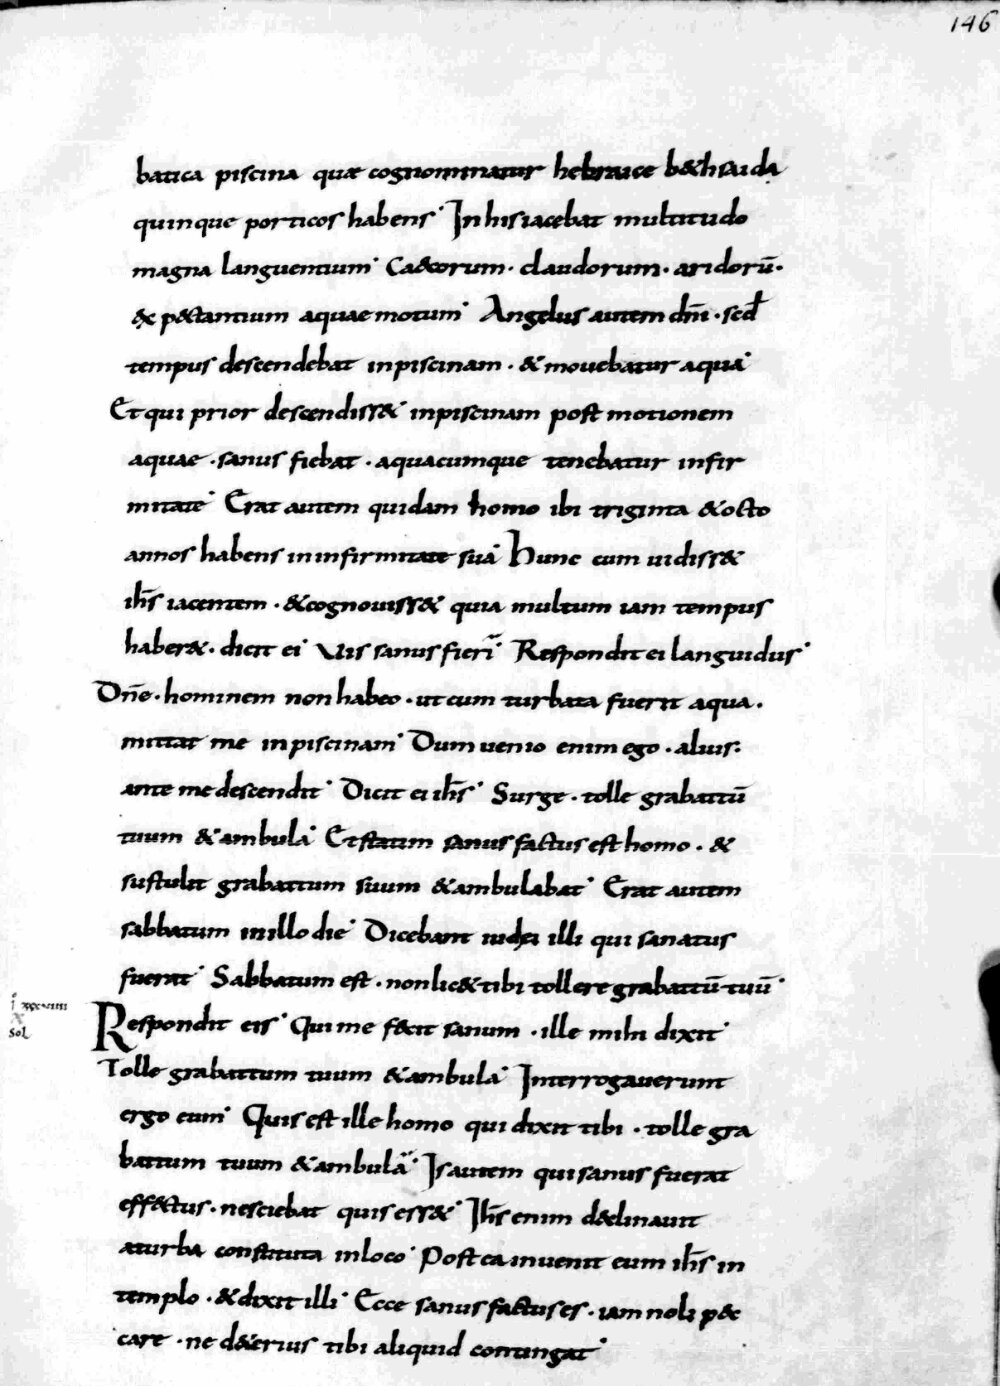 146
batica piscina quae cognominatur hebraice b&hsaida
quinque porticos habens· In his iacebat multitudo
magna languentium· Caecorum· claudorum· aridorū·
&xp&ctantium aquae motum· Angelus autem dn̄i· scd̄
tempus descendebat in piscinam· & mouebatur aqua·
Et qui prior descendiss& in piscinam post motionem
aquae· sanus fiebat· a quacumque tenebatur infir
mitate· Erat autem quidam homo ibi triginta & octo
annos habens in infirmitate sua· Hunc cum uidiss&
ih̄s iacentem· & cognouiss& quia multum iam tempus
haber&· dicit ei· Vis sanus fieri· Respondit ei languidus·
Dn̄e· hominem non habeo· ut cum turbata fuerit aqua·
mittat me in piscinam· Dum uenio enim ego· alius·
ante me descendit· Dicit ei ih̄s· Surge· tolle grabattū
tuum & ambula· Et statim sanus factus est homo· &
sustulit grabattum suum & ambulabat· Erat autem
sabbatum in illo die· Dicebant iudei illi qui sanatus
fuerat· Sabbatum est· non lic& tibi tollere grabattū tuū·
Respondit eis· Qui me fecit sanum· ille mihi dixit·
Tolle grabattum tuum & ambula· Interrogauerunt
ergo eum· Quis est ille homo qui dixit tibi· tolle gra
battum tuum & ambula· Is autem qui sanus fuerat
eff&ctus· nesciebat quis ess&· Ih̄s enim declinauit
a turba constituta in loco· Post ea inuenit eum ih̄s in
templo· & dixit illi· Ecce sanus factus es· iam noli p&c
care· ne d&erius tibi aliquid contingat·
sol